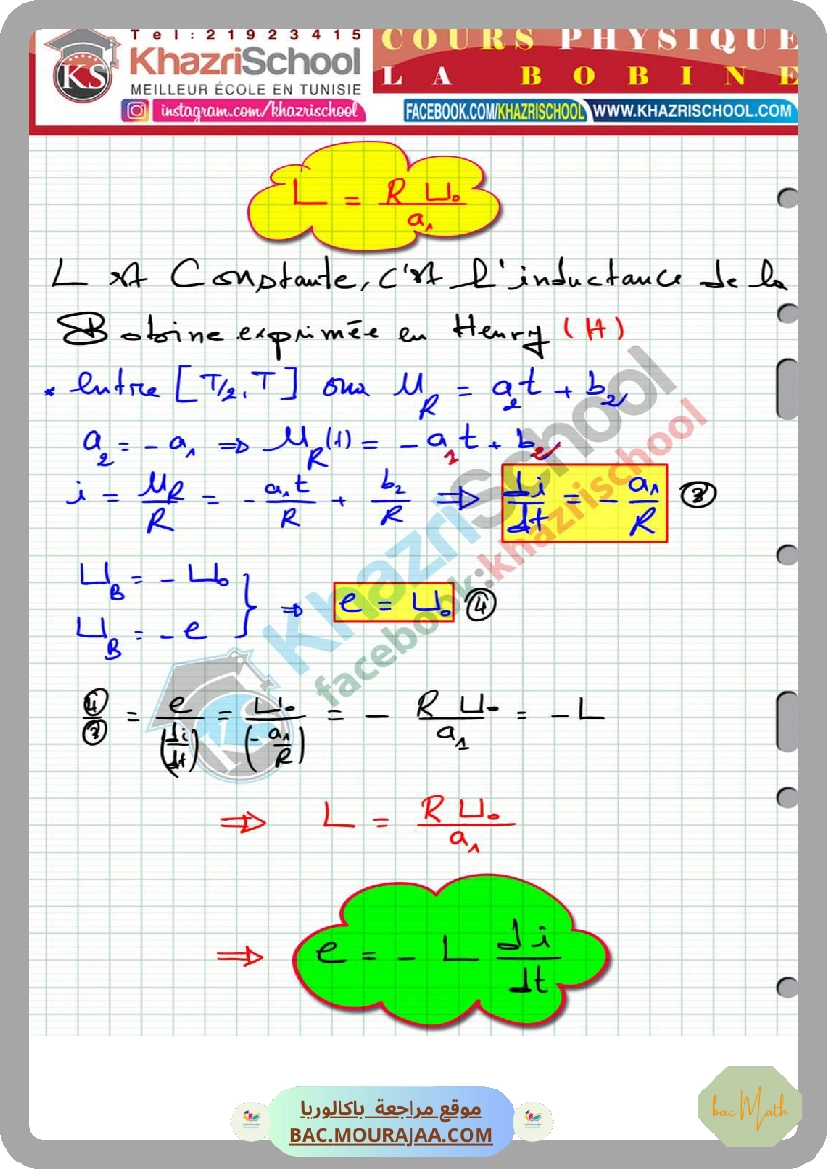 Tel:21923415
KhazriSchool
KS
MEILLEUR ÉCOLE EN TUNISIE
instagram.com/khazrischool
COURS PHYSIQUE
LA BOBINE
FACEBOOK.COM/KHAZRISCHOOL WWW.KHAZRISCHOOL.COM
L = R U₀ / a₁
L est Constante, c'est l'inductance de la
Bobine exprimée en Henry (H)
* entre [T/2, T] on a u_R = a₂t + b₂
a₂ = - a₁ ⇒ u_R(t) = - a₁t + b₂
i = u_R/R = - a₁t/R + b₂/R ⇒ di/dt = - a₁/R ③
U_B = - U₀
U_B = - e } ⇒ e = U₀ ④
④/③ = e/(di/dt) = U₀/(-a₁/R) = - R U₀/a₁ = - L
⇒ L = R U₀ / a₁
⇒ e = - L di/dt
KhazriSchool
facebook:khazrischool
KS
موقع مراجعة باكالوريا
BAC.MOURAJAA.COM
bac Math